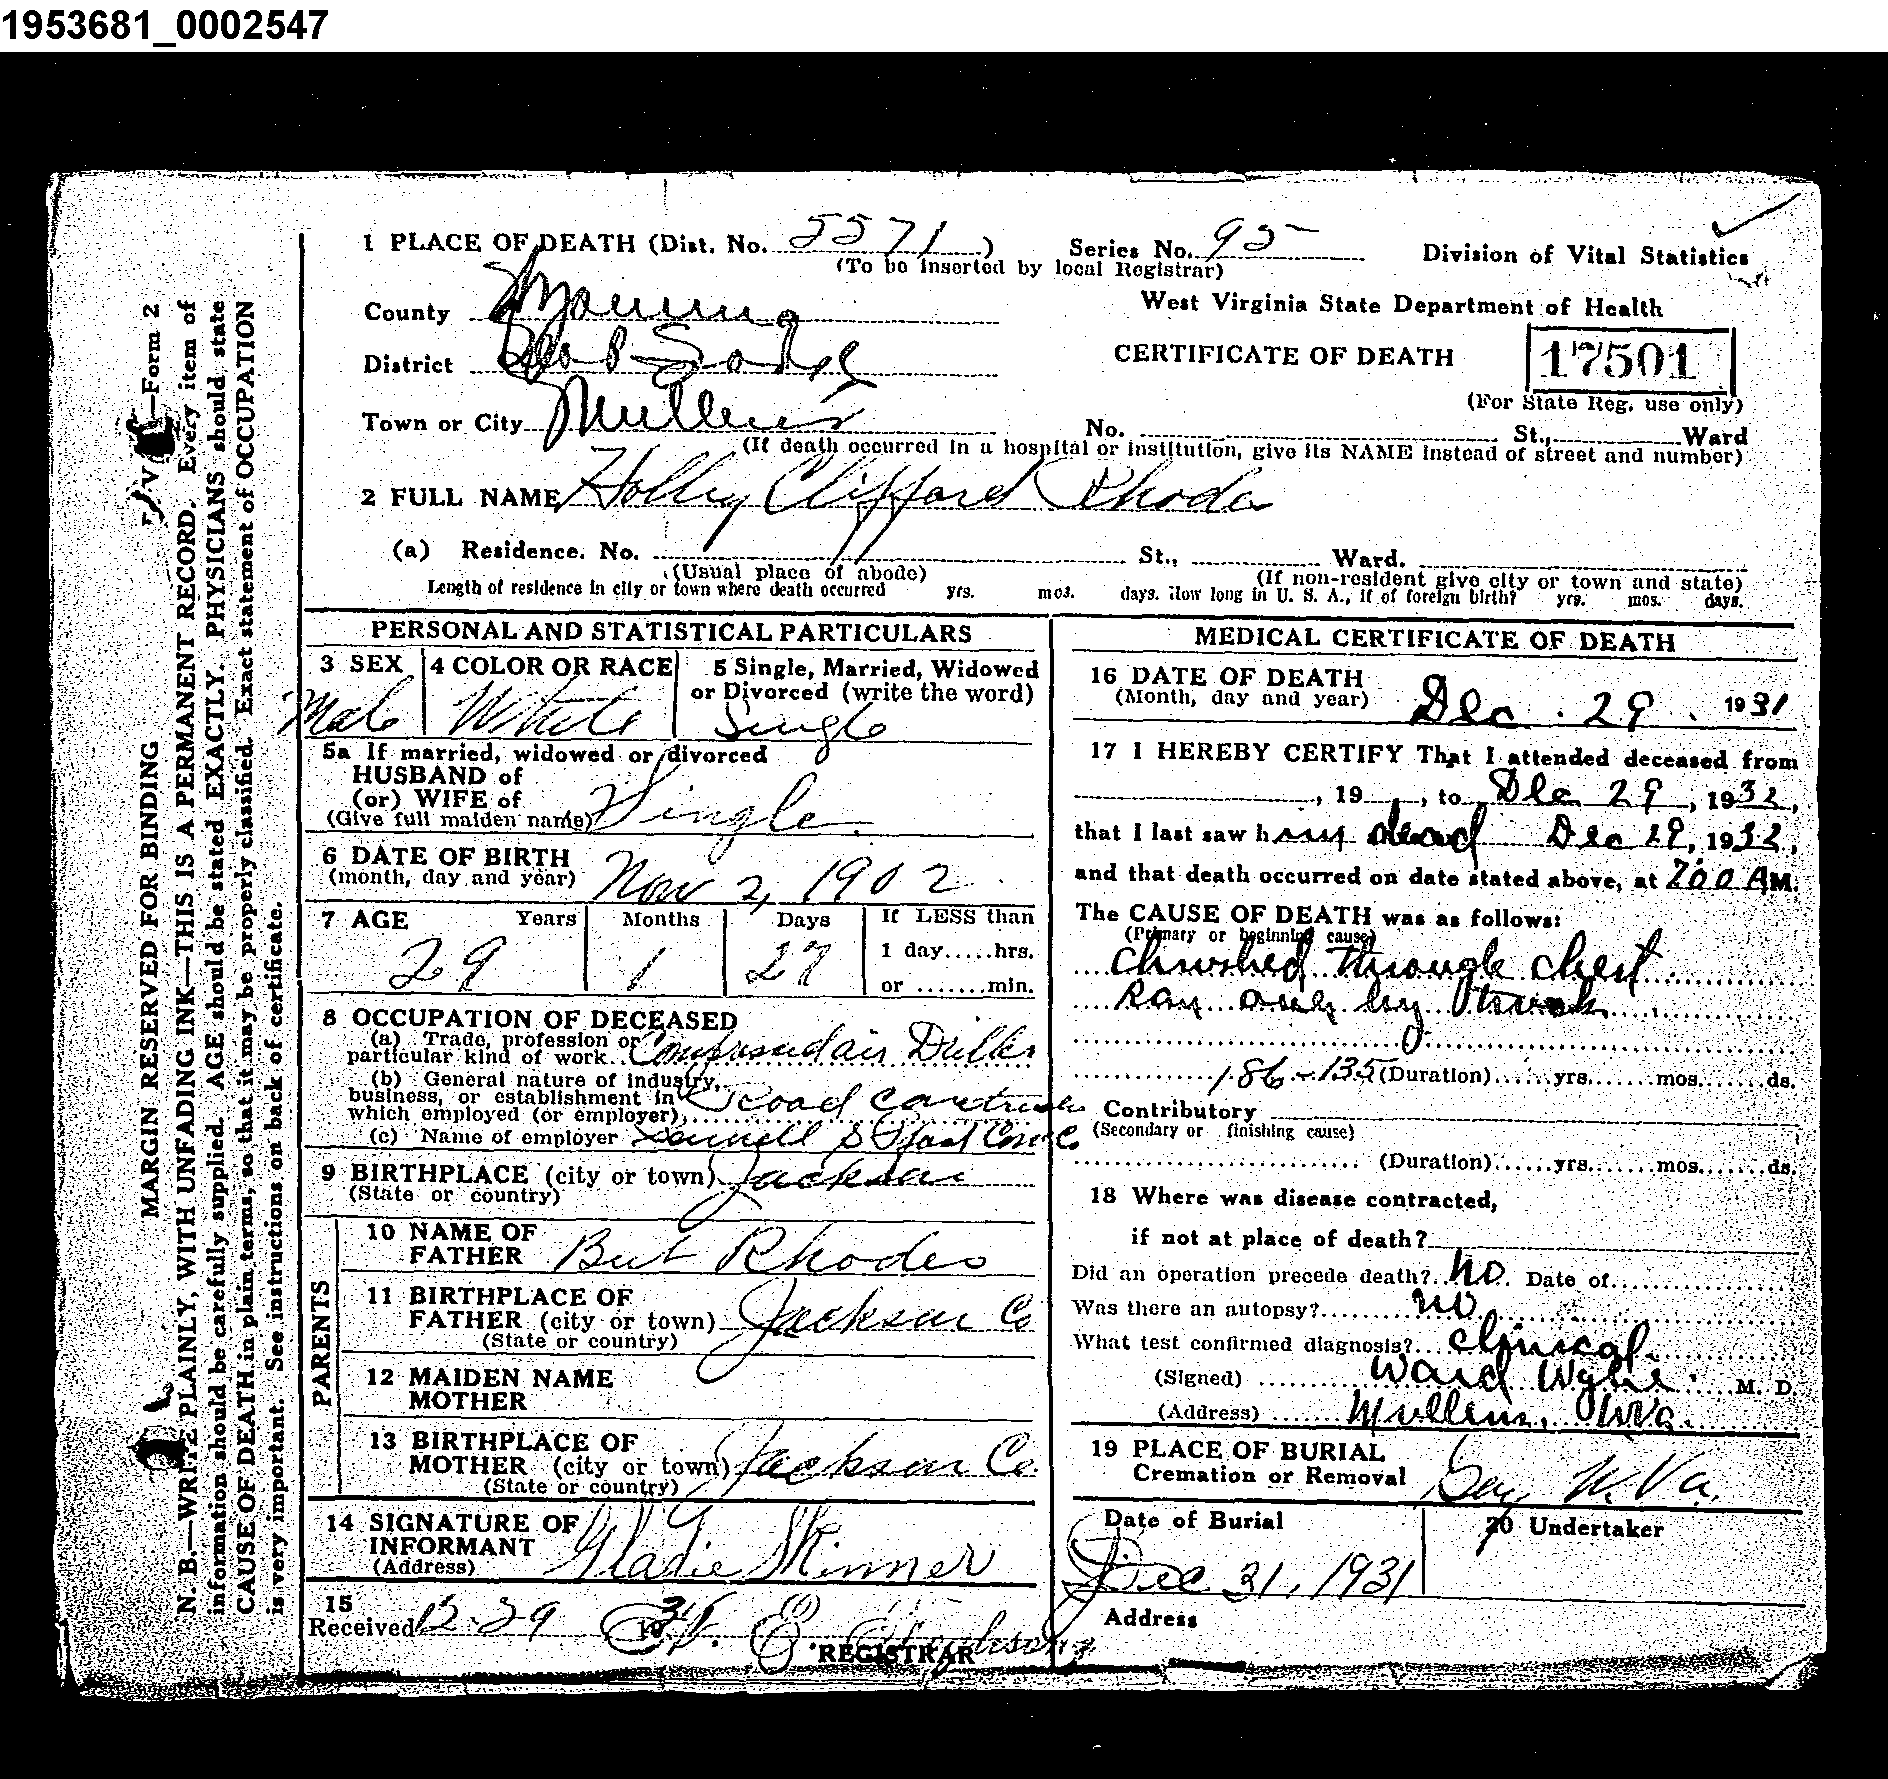 1953681_0002547
1 PLACE OF DEATH (Dist. No. 5571) Series No. 95 Division of Vital Statistics
(To be inserted by local Registrar)
County Wyoming West Virginia State Department of Health
District CERTIFICATE OF DEATH 17501
(For State Reg. use only)
Town or City Mullens No. St., Ward
(If death occurred in a hospital or institution, give its NAME instead of street and number)
2 FULL NAME Holley Clifford Rhodes
(a) Residence. No. St., Ward.
(Usual place of abode) (If non-resident give city or town and state)
Length of residence in city or town where death occurred yrs. mos. days. How long in U. S. A., if of foreign birth? yrs. mos. days.
PERSONAL AND STATISTICAL PARTICULARS
3 SEX 4 COLOR OR RACE 5 Single, Married, Widowed
or Divorced (write the word)
Male White Single
5a If married, widowed or divorced
HUSBAND of
(or) WIFE of
(Give full maiden name) Single
6 DATE OF BIRTH
(month, day and year) Nov 2, 1902
7 AGE Years Months Days If LESS than
29 1 27 1 day.....hrs.
or .......min.
8 OCCUPATION OF DECEASED
(a) Trade, profession or
particular kind of work
(b) General nature of industry,
business, or establishment in
which employed (or employer) Road
(c) Name of employer
9 BIRTHPLACE (city or town) Jackson
(State or country)
PARENTS
10 NAME OF
FATHER Burt Rhodes
11 BIRTHPLACE OF
FATHER (city or town) Jackson Co
(State or country)
12 MAIDEN NAME
MOTHER
13 BIRTHPLACE OF
MOTHER (city or town) Jackson Co.
(State or country)
14 SIGNATURE OF
INFORMANT Gladie Skinner
(Address)
15
Received 12-29 1931
REGISTRAR
MEDICAL CERTIFICATE OF DEATH
16 DATE OF DEATH
(Month, day and year) Dec. 29. 1931
17 I HEREBY CERTIFY That I attended deceased from
, 19 , to Dec 29, 1932,
that I last saw him dead Dec 29, 1932,
and that death occurred on date stated above, at 7:00 AM.
The CAUSE OF DEATH was as follows:
(Primary or beginning cause)
Chrushed through chest
Ran over by truck
186-135 (Duration) yrs. mos. ds.
Contributory
(Secondary or finishing cause)
(Duration) yrs. mos. ds.
18 Where was disease contracted,
if not at place of death?
Did an operation precede death? No. Date of
Was there an autopsy? no
What test confirmed diagnosis? clinical
(Signed) Ward Wylie M. D.
(Address) Mullens, W.Va.
19 PLACE OF BURIAL
Cremation or Removal Gay W. Va.
Date of Burial 20 Undertaker
Dec 31, 1931
Address
MARGIN RESERVED FOR BINDING
V —Form 2
N. B.—WRITE PLAINLY, WITH UNFADING INK—THIS IS A PERMANENT RECORD. Every item of
information should be carefully supplied. AGE should be stated EXACTLY. PHYSICIANS should state
CAUSE OF DEATH in plain terms, so that it may be properly classified. Exact statement of OCCUPATION
is very important. See instructions on back of certificate.